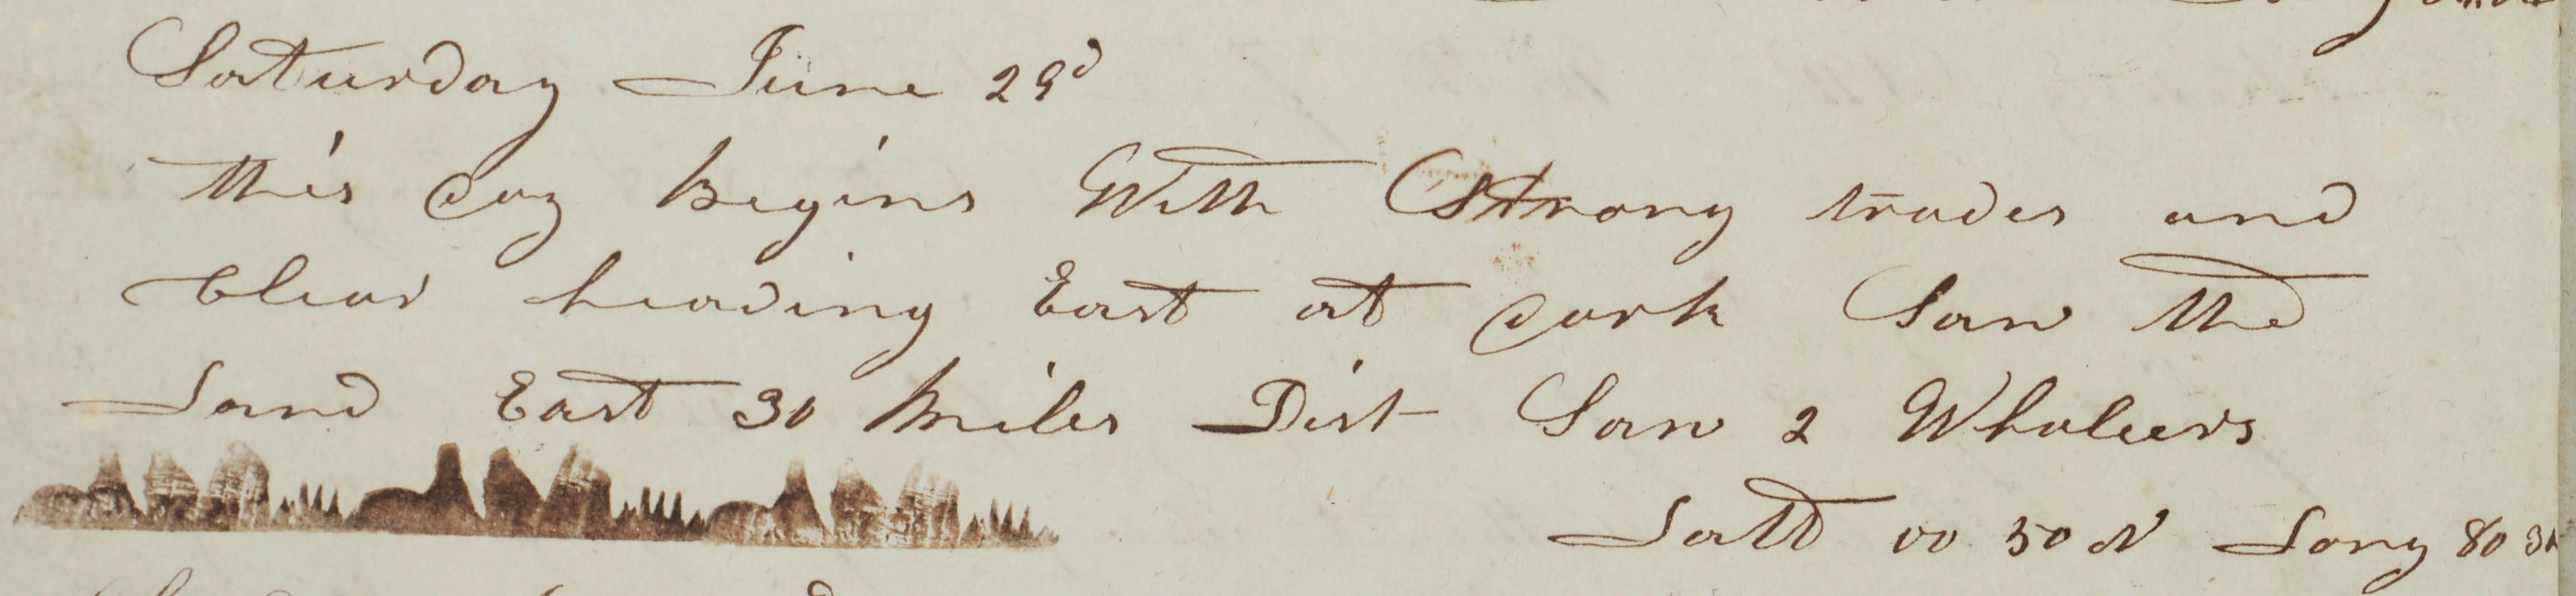 Saturday June 29d
this day begins With Strong trades and
Clear heading East at dark Saw the
Land East 30 miles Dist Saw 2 Whaleers
Latt 00 50 N Long 80